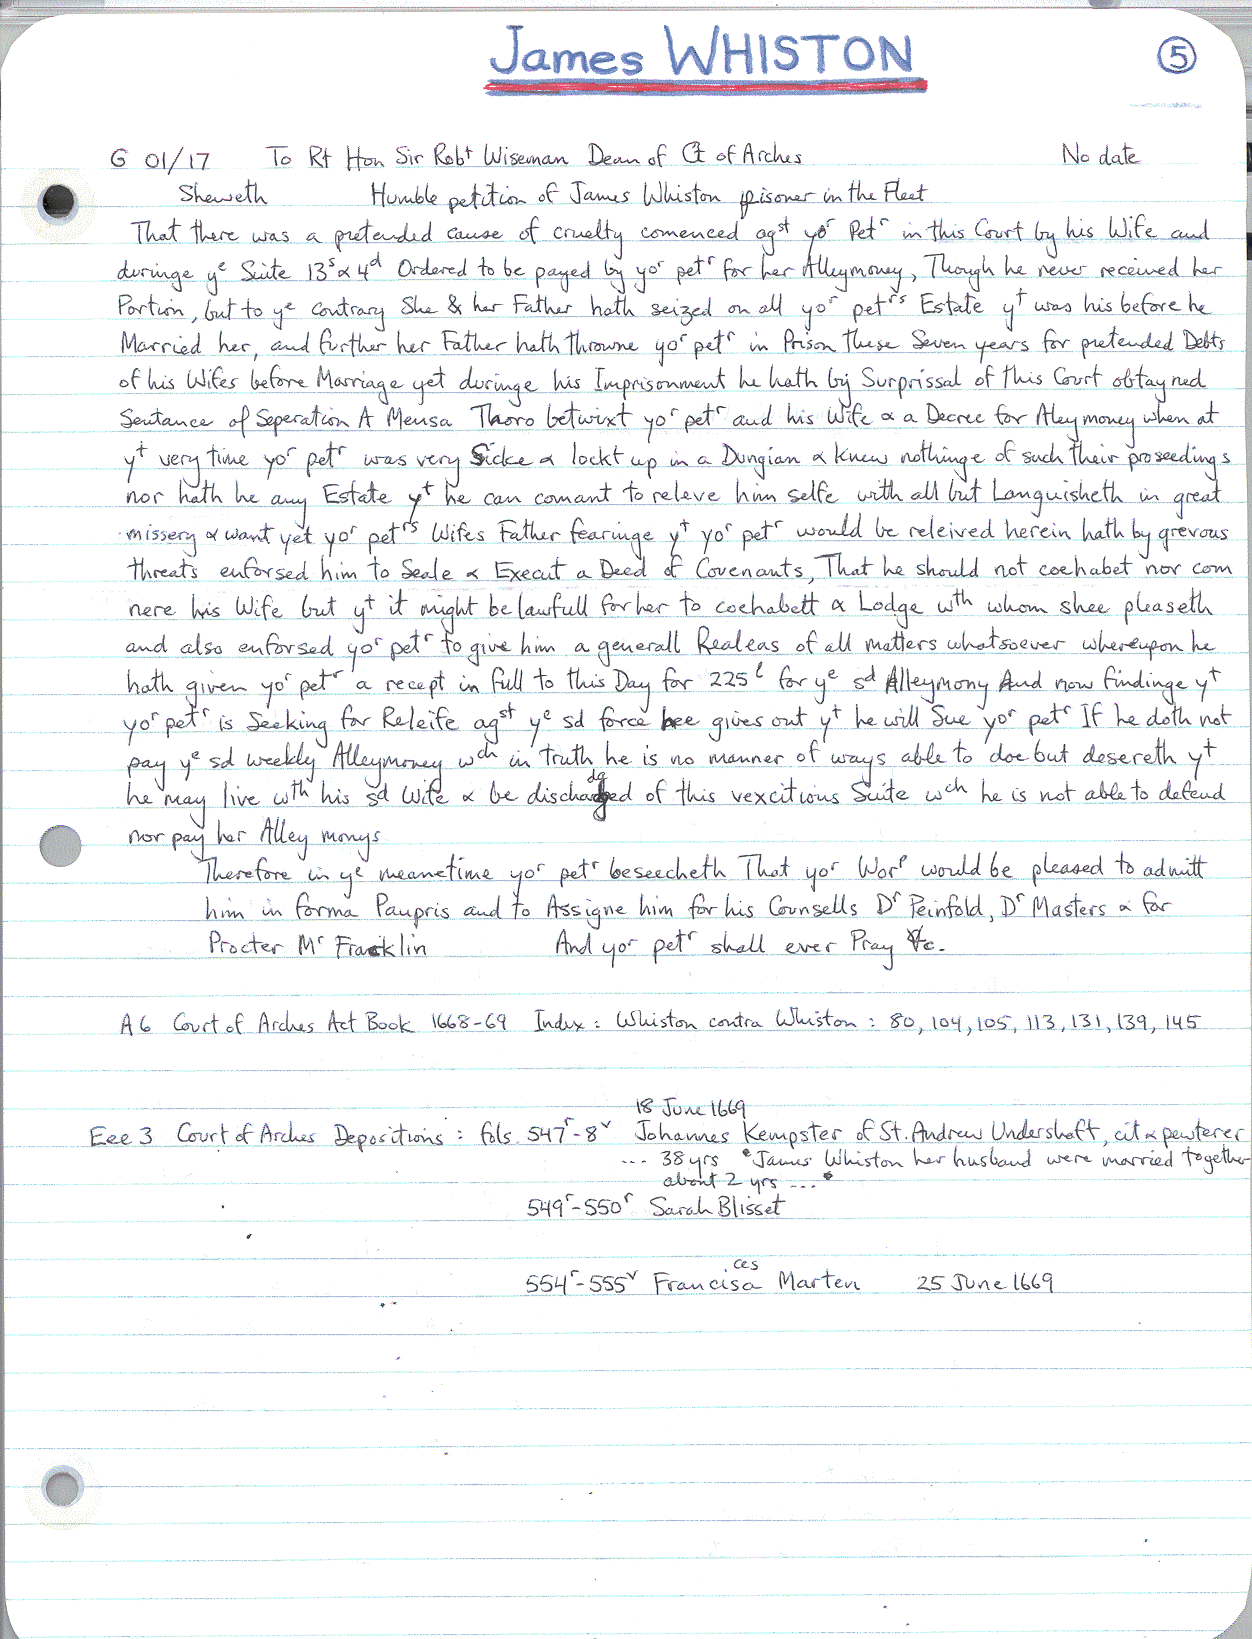 James WHISTON
5
G 01/17 To Rt Hon Sir Robt Wiseman Dean of Ct of Arches No date
Sheweth Humble petition of James Whiston prisoner in the Fleet
That there was a pretended cause of cruelty comenced agst yor Petr in this Court by his Wife and
duringe ye Suite 13s & 4d Ordered to be payed by yor petr for her Alleymoney, Though he never received her
Portion, but to ye contrary She & her Father hath seized on all yor petrs Estate yt was his before he
Married her, and further her Father hath throwne yor petr in Prison these Seven years for pretended Debts
of his Wifes before Marriage yet duringe his Imprisonment he hath by Surprissal of this Court obtayned
Sentance of Seperation A Mensa Thoro betwixt yor petr and his Wife & a Decree for Aleymoney when at
yt very time yor petr was very Sicke & lockt up in a Dungian & knew nothinge of such their proseedings
nor hath he any Estate yt he can comant to releve him selfe with all but Languisheth in great
missery & want yet yor petrs Wifes Father fearinge yt yor petr would be releived herein hath by grevous
threats enforsed him to Seale & Execut a Deed of Covenants, That he should not coehabet nor com
nere his Wife but yt it might be lawfull for her to coehabett & Lodge wth whom shee pleaseth
and also enforsed yor petr to give him a generall Realeas of all matters whatsoever whereupon he
hath given yor petr a recept in full to this Day for 225l for ye sd Alleymony And now findinge yt
yor petr is Seeking for Releife agst ye sd force hee gives out yt he will Sue yor petr If he doth not
pay ye sd weekly Alleymoney wch in truth he is no manner of ways able to doe but desereth yt
he may live wth his sd Wife & be dischardged of this vexcitious Suite wch he is not able to defend
nor pay her Alley monys
Therefore in ye meanetime yor petr beseecheth That yor Worp would be pleased to admitt
him in forma Paupris and to Assigne him for his Counsells Dr Peinfold, Dr Masters & for
Procter Mr Francklin And yor petr shall ever Pray &c.
A6 Court of Arches Act Book 1668-69 Index: Whiston contra Whiston: 80, 104, 105, 113, 131, 139, 145
18 June 1669
Eee 3 Court of Arches Depositions: fols 547r-8v Johannes Kempster of St. Andrew Undershaft, cit & pewterer
... 38 yrs "James Whiston her husband were married together
about 2 yrs ...."
549r-550r Sarah Blisset
ces
554r-555v Francisa Marten 25 June 1669